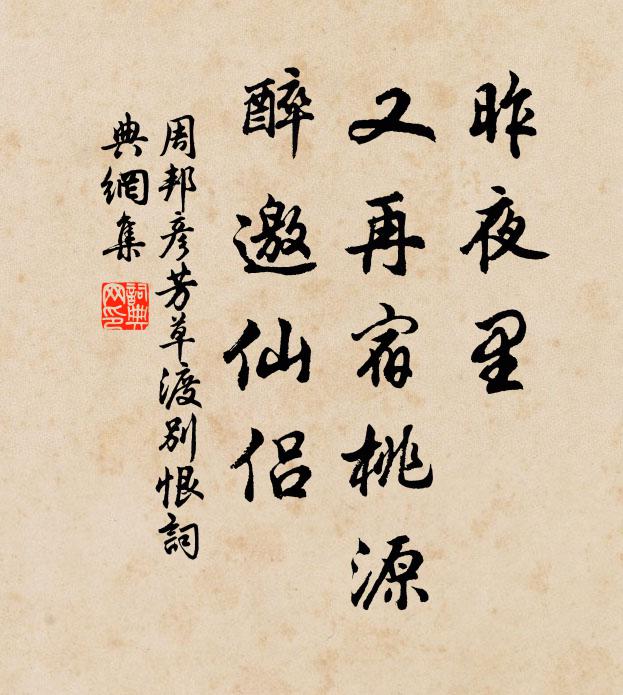 昨夜里
又再宿桃源
醉邀仙侣
周邦彦芳草渡别恨词
典網集
詞典
网印